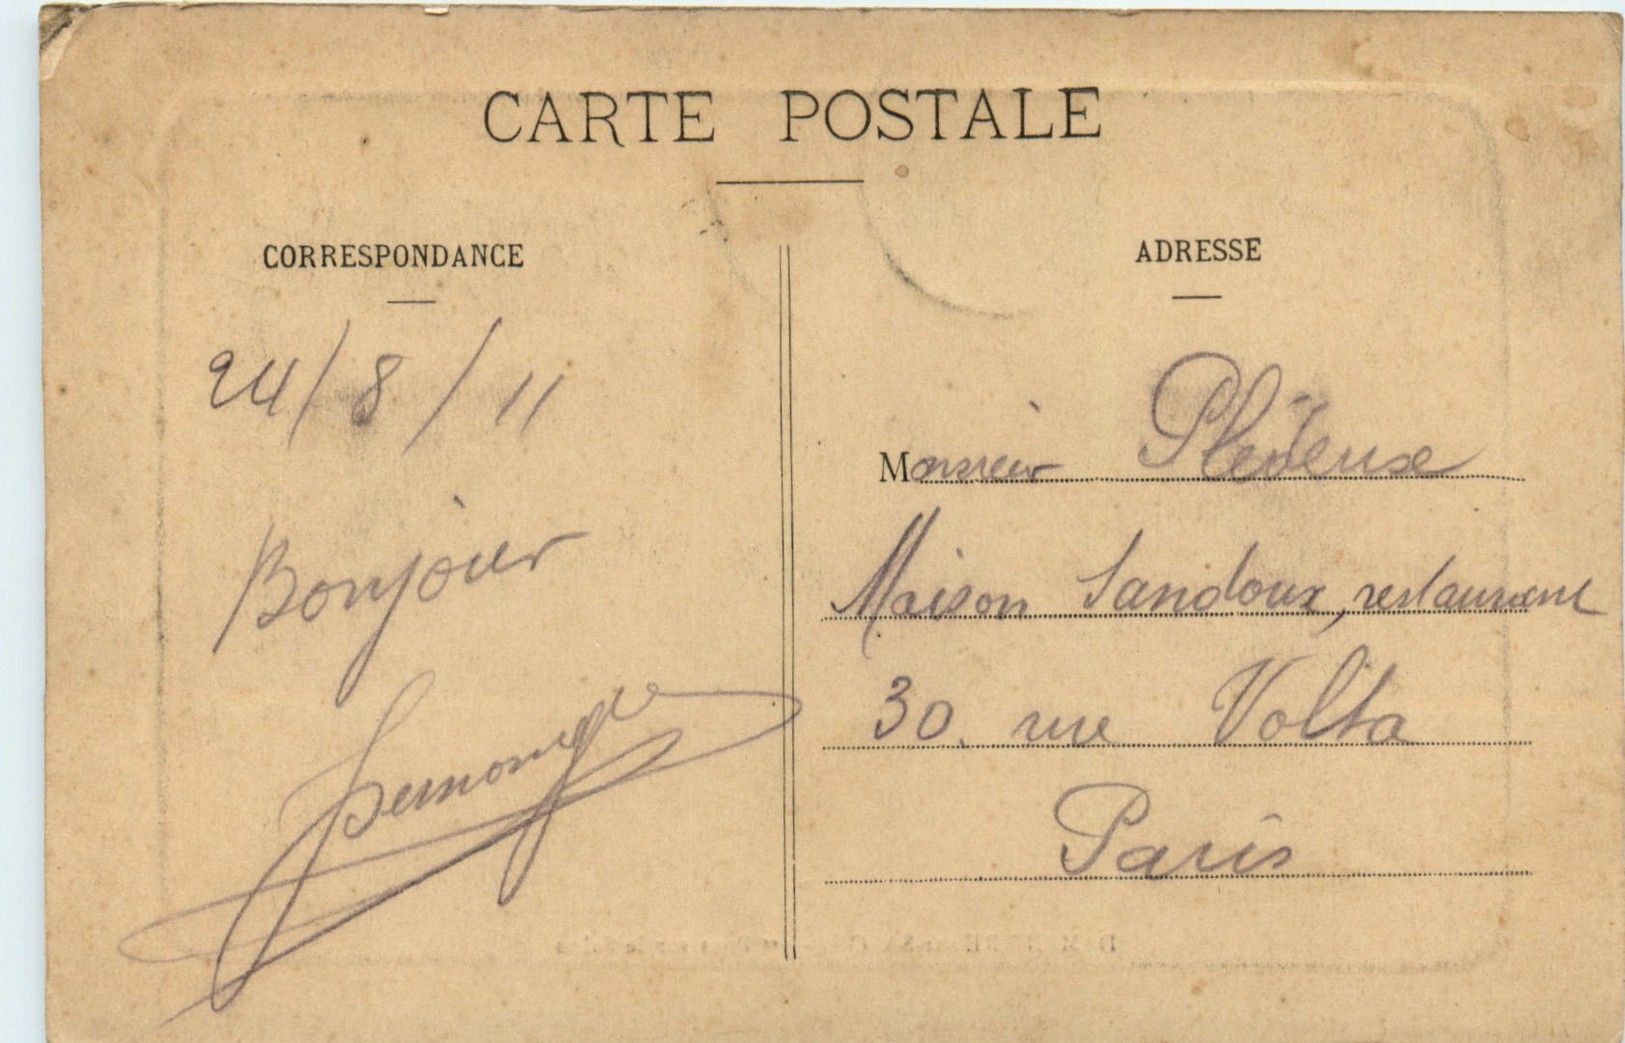 CARTE POSTALE
CORRESPONDANCE
ADRESSE
24/8/11
Bonjour
Monsieur
Maison Sandoux, restaurant
30. rue Volta
Paris